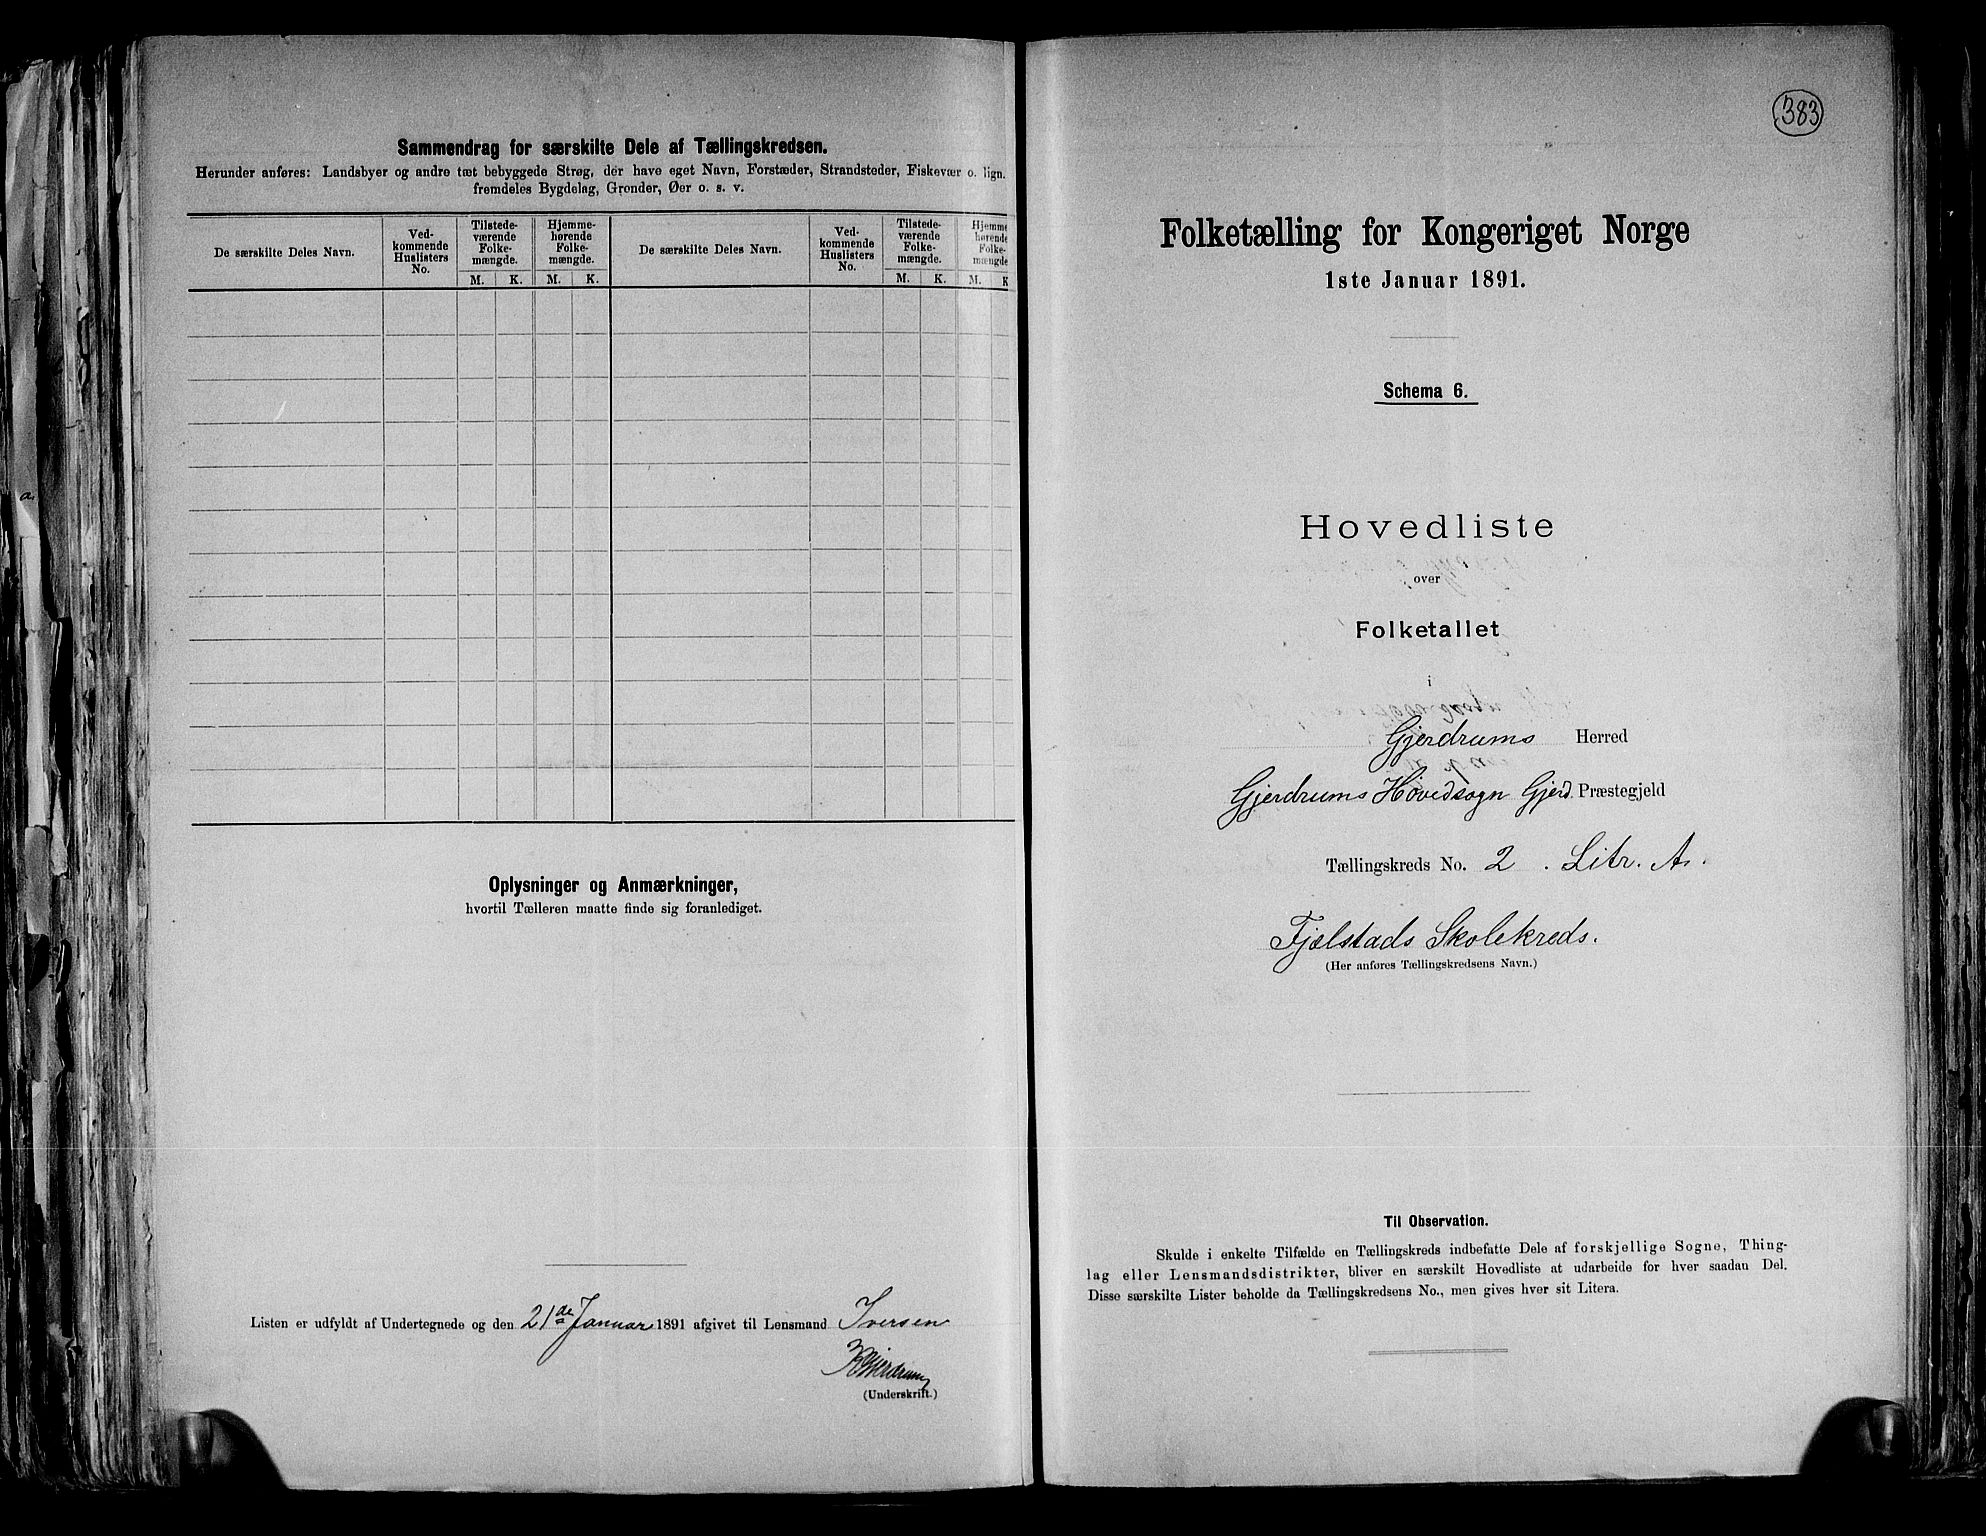 Sammendrag for særskilte Dele af Tællingskredsen.
Herunder anføres: Landsbyer og andre tæt bebyggede Strøg, der have eget Navn, Forstæder, Strandsteder, Fiskevær o. lign.
fremdeles Bygdelag, Grender, Øer o. s. v.
De særskilte Deles Navn.
Ved-
kommende
Huslisters
No.
Tilstede-
værende
Folke-
mængde.
Hjemme-
hørende
Folke-
mængde.
M. K. M. K.
De særskilte Deles Navn.
Ved-
kommende
Huslisters
No.
Tilstede-
værende
Folke-
mængde.
Hjemme
hørende
Folke-
mængde
M. K. M. K
Oplysninger og Anmærkninger,
hvortil Tælleren maatte finde sig foranlediget.
Listen er udfyldt af Undertegnede og den 21de Januar 1891 afgivet til Lensmand Iversen
Gjerdrum
(Underskrift.)
383
Folketælling for Kongeriget Norge
1ste Januar 1891.
Schema 6.
Hovedliste
over
Folketallet
i
Gjerdrums Herred
Gjerdrums Hovedsogn Gjerd. Præstegjeld
Tællingskreds No. 2 . Litr. A.
Fjælstads Skolekreds.
(Her anføres Tællingskredsens Navn.)
Til Observation.
Skulde i enkelte Tilfælde en Tællingskreds indbefatte Dele af forskjellige Sogne, Thing-
lag eller Lensmandsdistrikter, bliver en særskilt Hovedliste at udarbeide for hver saadan Del.
Disse særskilte Lister beholde da Tællingskredsens No., men gives hver sit Litera.